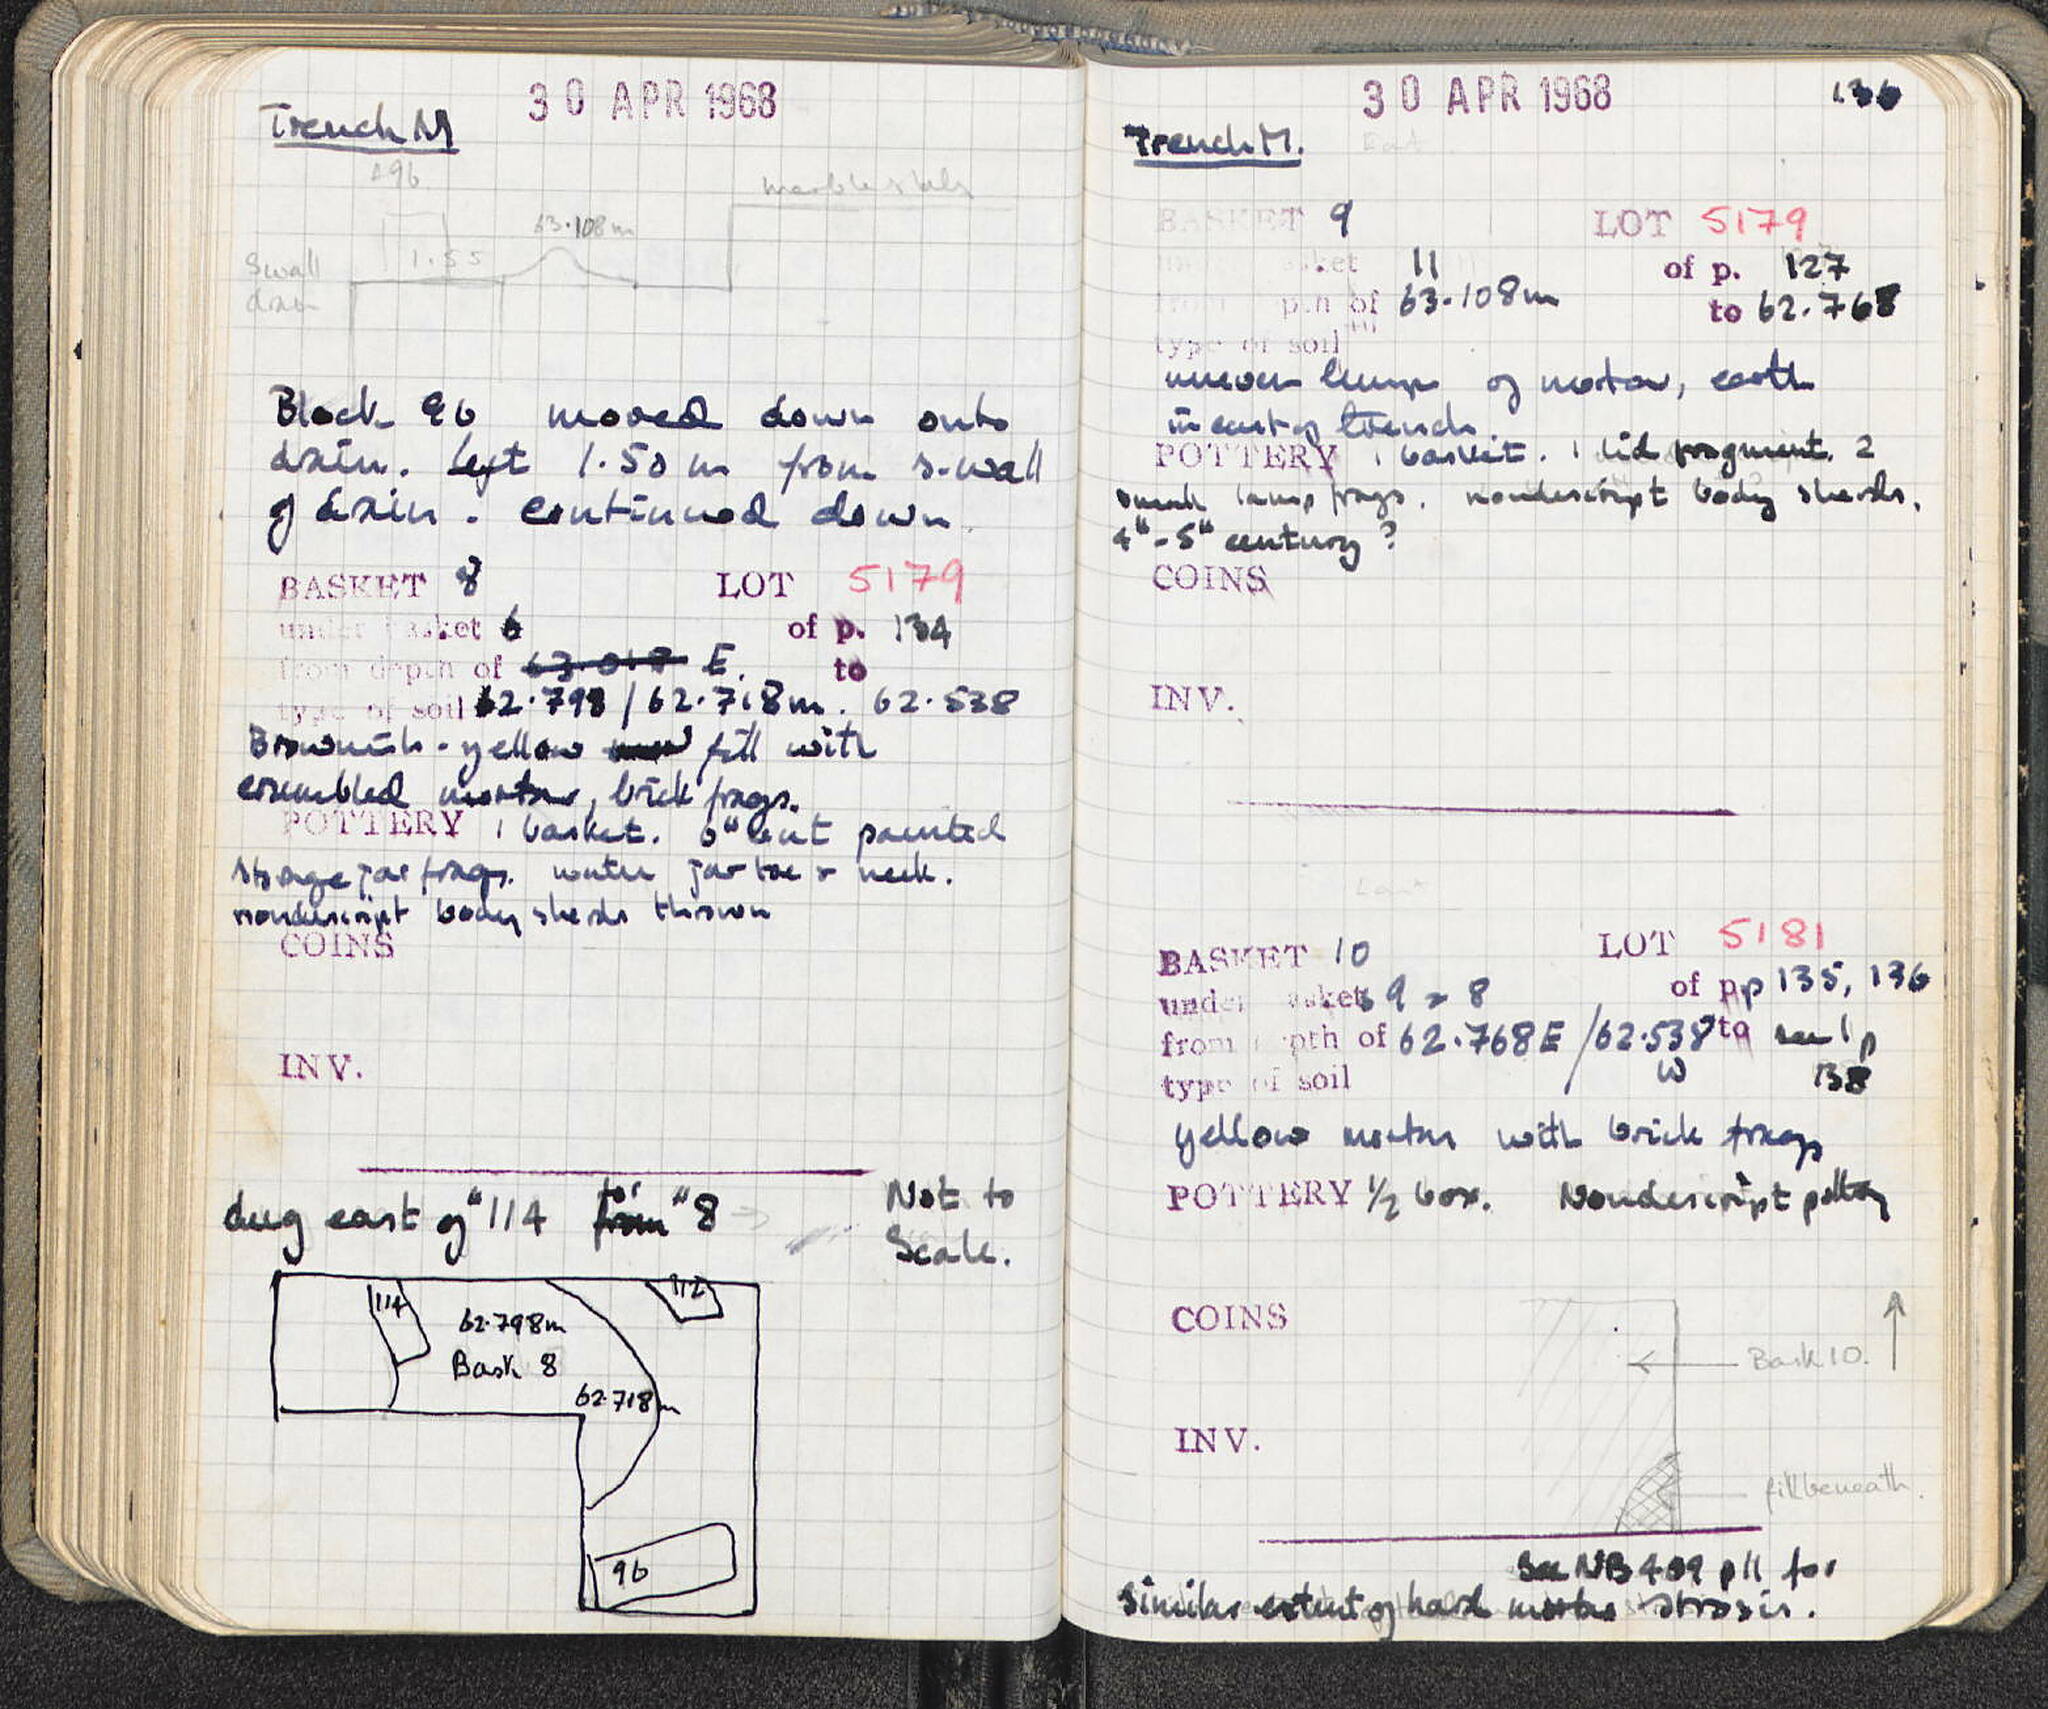 30 APR 1968
Trench M
96
marble slab
63.108m
S wall
drain
1.55
Block 96 moved down onto
drain. Left 1.50 m from s. wall
of drain. continued down
BASKET 8 LOT 5179
under basket 6 of p. 134
from depth of 63.018 E. to
type of soil 62.798 / 62.718m. 62.538
Brownish-yellow fill with
crumbled mortar, brick frags.
POTTERY 1 basket. painted
storage jar frags. water jar toe & neck.
nondescript body sherds thrown
COINS
INV.
dug east of "114 for "8
Not to
Scale.
114
112
62.798m
Bask 8
62.718m
96
30 APR 1968
136
Trench M.
East
BASKET 9 LOT 5179
under basket 11 of p. 127
from depth of 63.108m to 62.768
type of soil
uneven lumps of mortar, earth
in east of trench
POTTERY 1 basket. 1 lid fragment. 2
small lamp frags. nondescript body sherds.
4" - 5" century?
COINS
INV.
East
BASKET 10 LOT 5181
under baskets 9 & 8 of pp 135, 136
from depth of 62.768E / 62.538 to see p
W 138
type of soil
yellow mortar with brick frags
POTTERY 1/2 box. Nondescript pottery
COINS
Bask 10.
INV.
fill beneath.
See NB 409 p11 for
similar extent of hard mortar strosis.